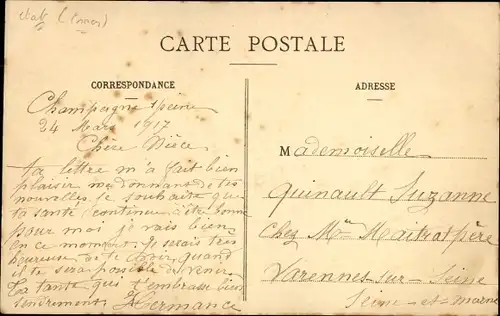 CARTE POSTALE
CORRESPONDANCE
Champagne s/seine
24 Mars 1917
Chère Nièce
ta lettre m'a fait bien
plaisir me donnant de tes
nouvelles. je souhaite que
ta santé continue à être bonne
pour moi je vais bien
en ce moment. je serais très
heureuse de te voir quand
il te sera possible de venir
Ta tante qui t'embrasse bien
tendrement Hermance
ADRESSE
Mademoiselle
Quinault Suzanne
Chez Mr Maitrat père
Varennes-sur-Seine
Seine-et-Marne